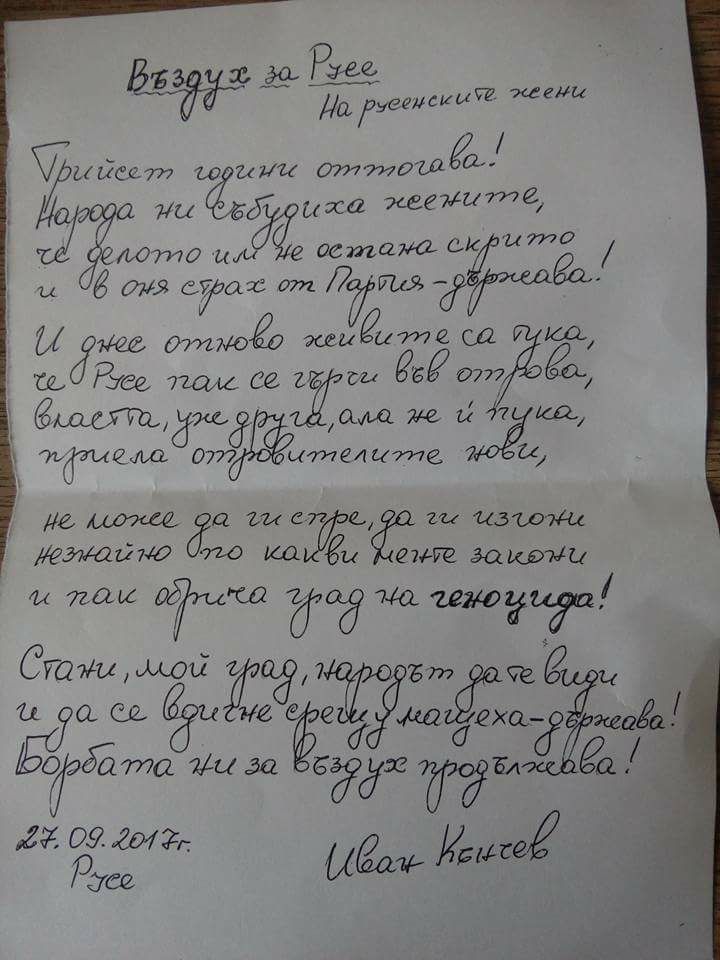 Въздух за Русе
На русенските жени
Трийсет години оттогава!
Народа ни събудиха жените,
че делото им не остана скрито
и в оня страх от Партия-държава!
И днес отново живите са тука,
че Русе пак се гърчи във отрова,
властта, уж друга, ала не ѝ пука,
приела отровителите нови,
не може да ги спре, да ги изгони
незнайно по какви менте закони
и пак обрича град на геноцида!
Стани, мой град, народът да те види
и да се вдигне срещу мащеха-държава!
Борбата ни за въздух продължава!
27.09.2017г.
Русе
Иван Кънчев